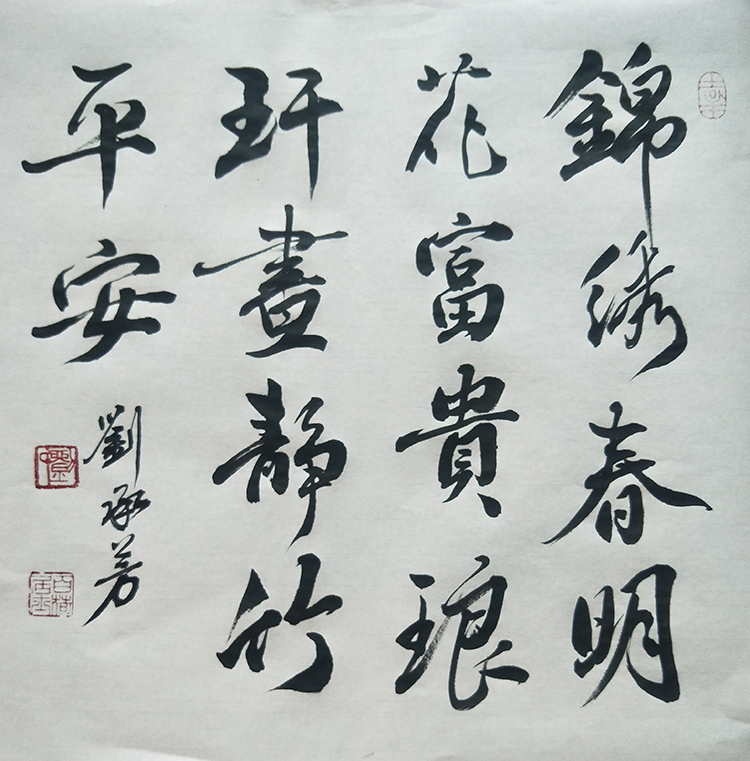 錦绣春明
花富貴琅
玕畫静竹
平安
劉承芳